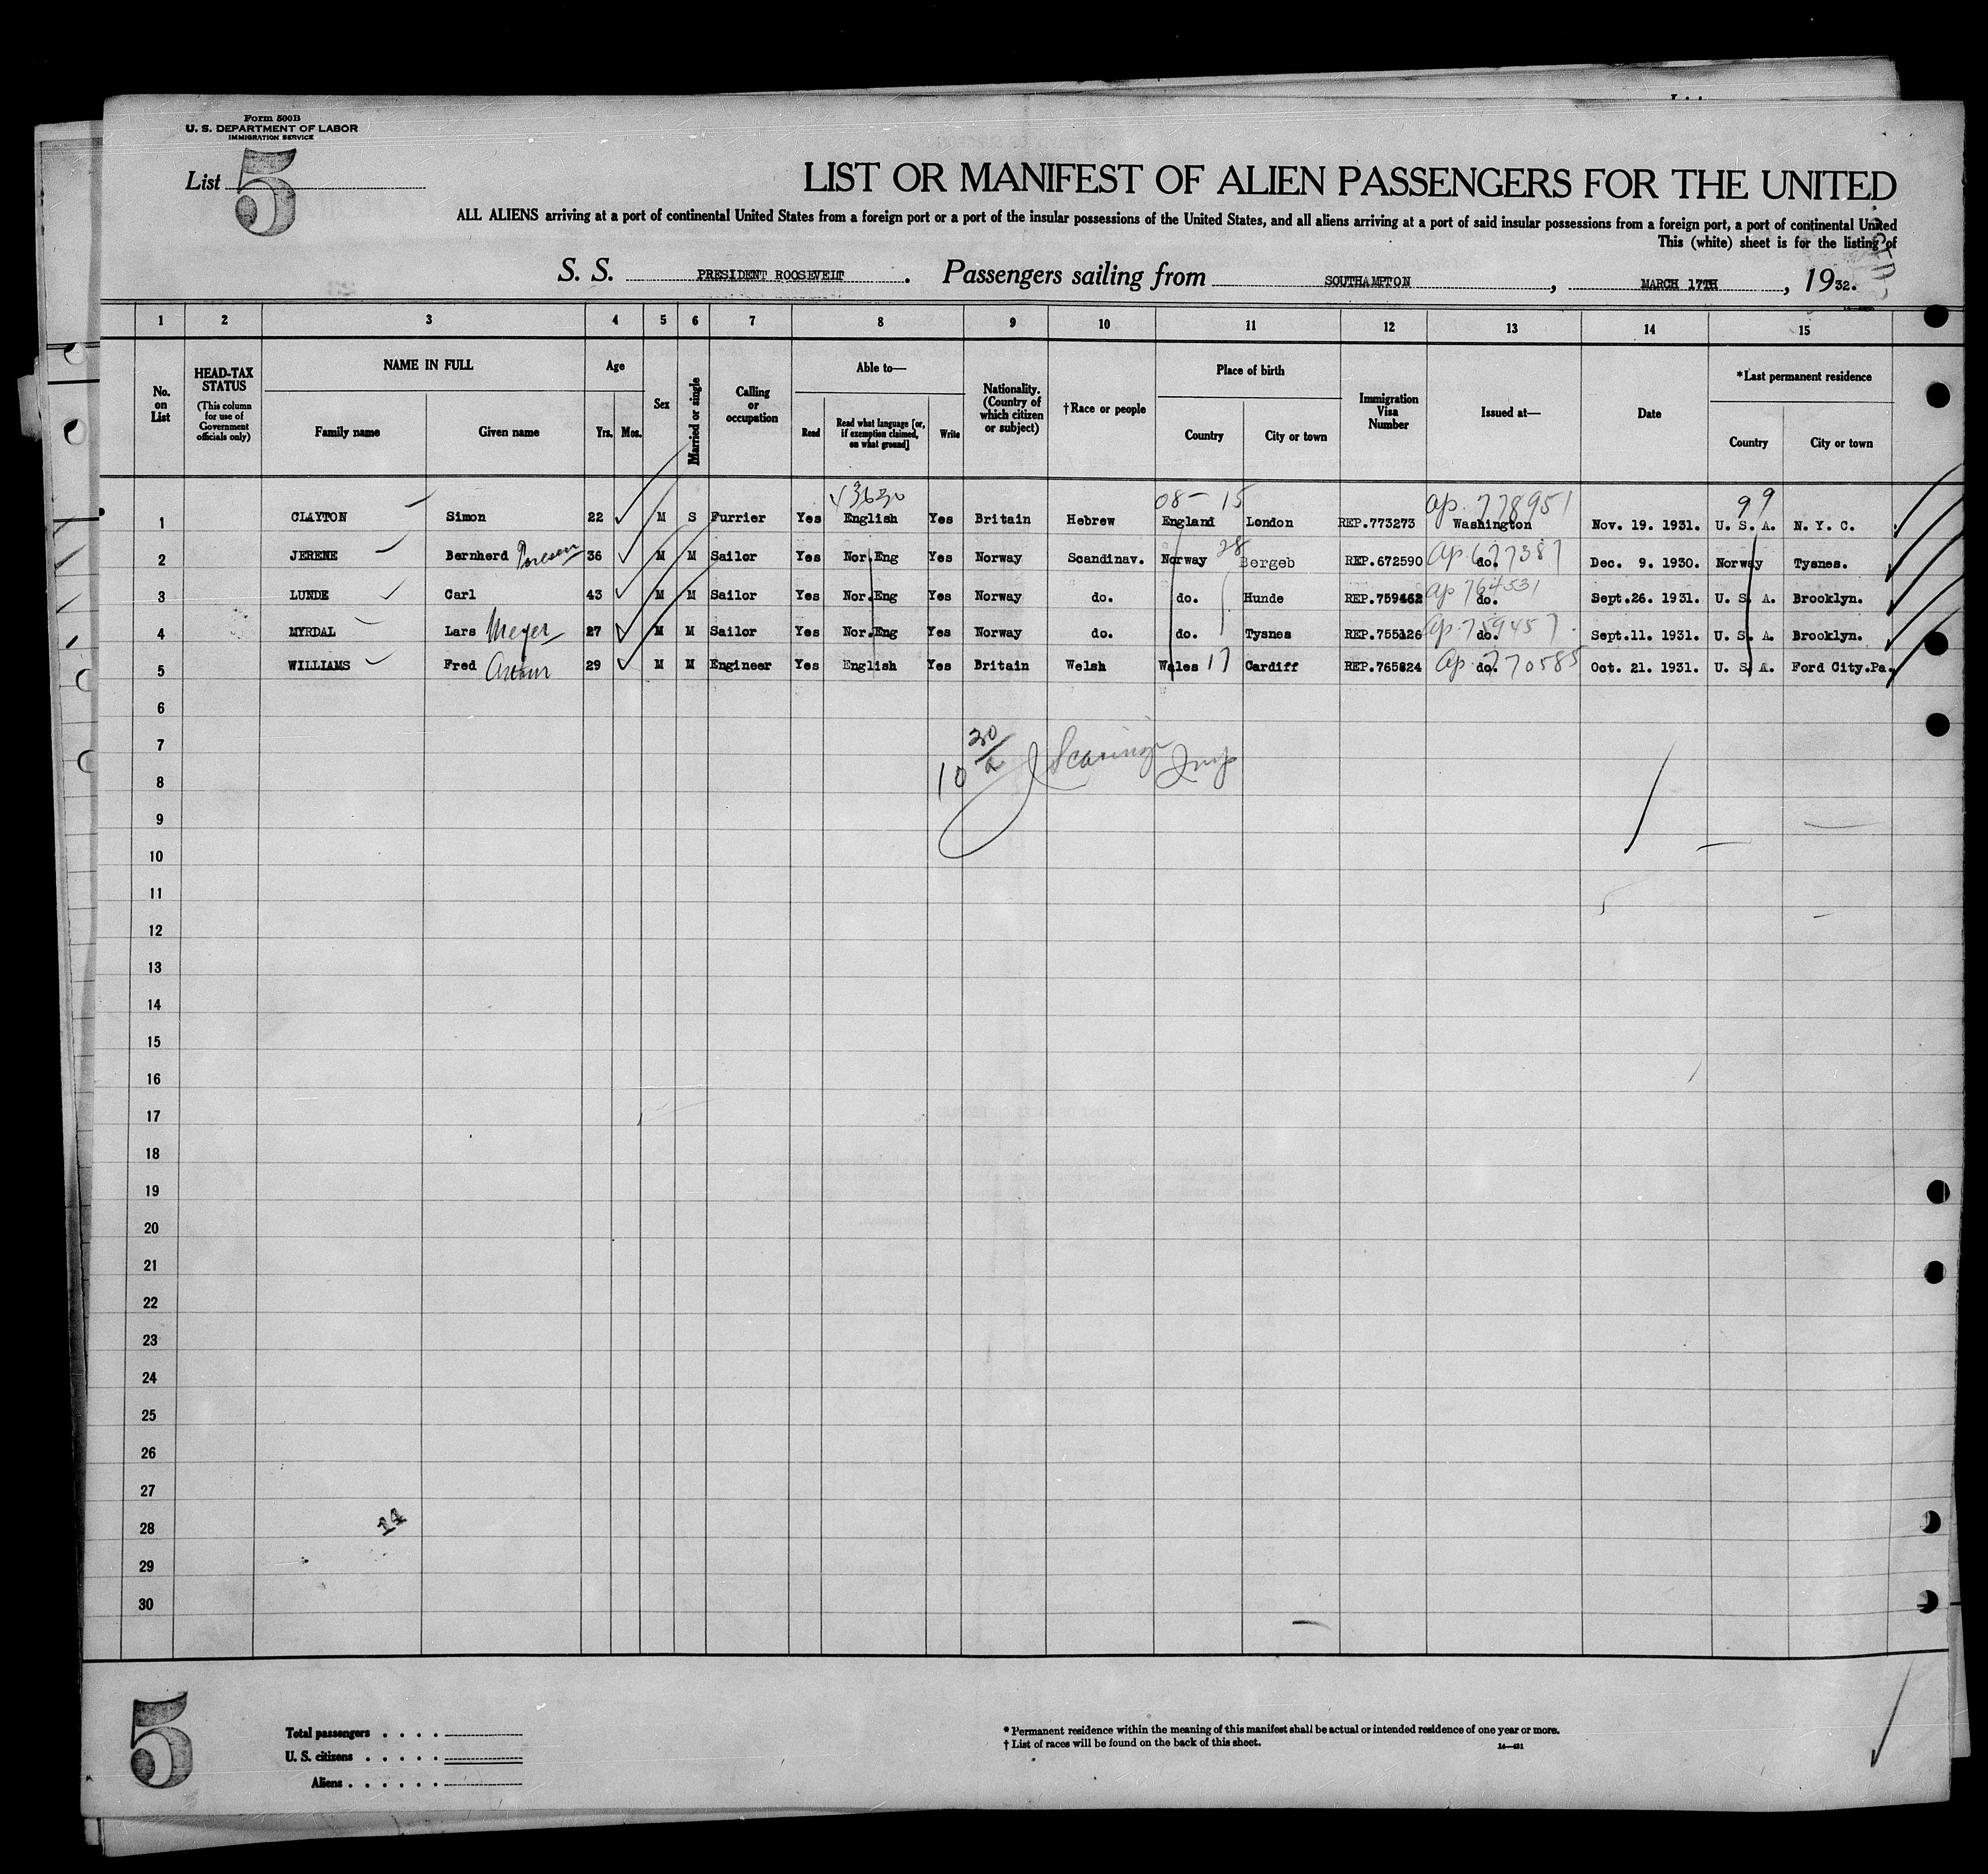 Form 500B
U. S. DEPARTMENT OF LABOR
IMMIGRATION SERVICE
List 5
LIST OR MANIFEST OF ALIEN PASSENGERS FOR THE UNITED
ALL ALIENS arriving at a port of continental United States from a foreign port or a port of the insular possessions of the United States, and all aliens arriving at a port of said insular possessions from a foreign port, a port of continental United
This (white) sheet is for the listing of
S. S. PRESIDENT ROOSEVELT. Passengers sailing from SOUTHAMPTON, MARCH 17TH, 1932.
1 2 3 4 5 6 7 8 9 10 11 12 13 14 15
No. on List
HEAD-TAX STATUS (This column for use of Government officials only)
NAME IN FULL
Family name Given name
Age
Yrs. Mos.
Sex
Married or single
Calling or occupation
Able to—
Read
Read what language [or, if exemption claimed, on what ground]
Write
Nationality. (Country of which citizen or subject)
†Race or people
Place of birth
Country City or town
Immigration Visa Number
Issued at—
Date
*Last permanent residence
Country City or town
3630 08- 15 ap. 778951 99
1 CLAYTON Simon 22 M S Furrier Yes English Yes Britain Hebrew England London REP.773273 Washington Nov. 19. 1931. U. S. A. N. Y. C.
2 JERENE Bernherd 36 M M Sailor Yes Nor.Eng Yes Norway Scandinav. Norway 28 Bergeb REP.672590 ap. 677387 do. Dec. 9. 1930. Norway Tysnes.
3 LUNDE Carl 43 M M Sailor Yes Nor.Eng Yes Norway do. do. Hunde REP.759462 ap 764531 do. Sept.26. 1931. U. S. A. Brooklyn.
4 MYRDAL Lars Meyer 27 M M Sailor Yes Nor.Eng Yes Norway do. do. Tysnes REP.755126 ap. 759457. do. Sept.11. 1931. U. S. A. Brooklyn.
5 WILLIAMS Fred Arthur 29 M M Engineer Yes English Yes Britain Welsh Wales 17 Cardiff REP.765824 ap. 770585 do. Oct. 21. 1931. U. S. A. Ford City.Pa.
6
7
8
9
10
11
12
13
14
15
16
17
18
19
20
21
22
23
24
25
26
27
28
29
30
14
5
Total passengers . . . .
U. S. citizens . . . . .
Aliens . . . . . .
* Permanent residence within the meaning of this manifest shall be actual or intended residence of one year or more.
† List of races will be found on the back of this sheet.
14—431